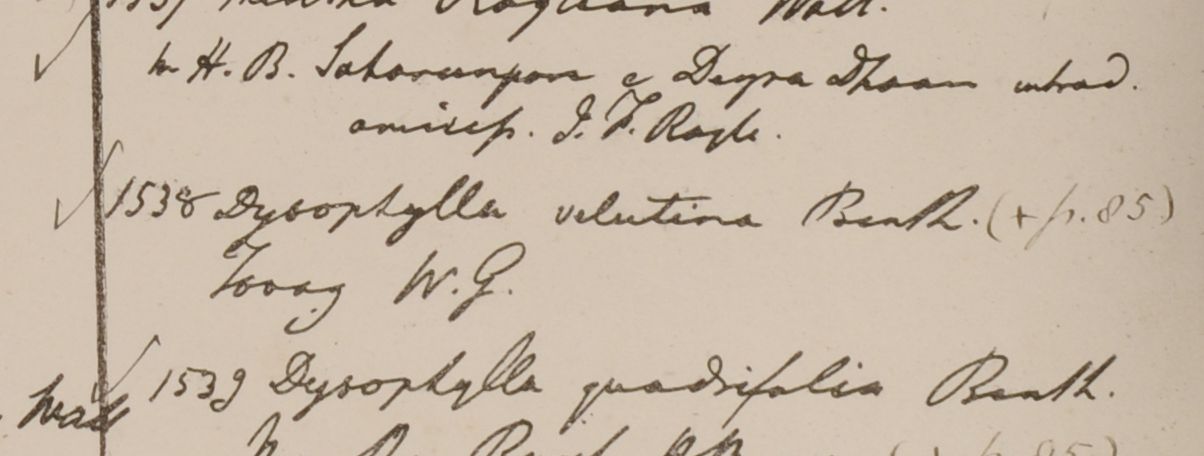 1537 Mentha Royleana Wall.
in H. B. Saharunpore e Deyra Dhoon introd.
amicif. I. F. Royle.
1538 Dysophylla velutina Benth. (+ p. 85)
Tovoy W. G.
1539 Dysophylla quadrifolia Benth.
Wall